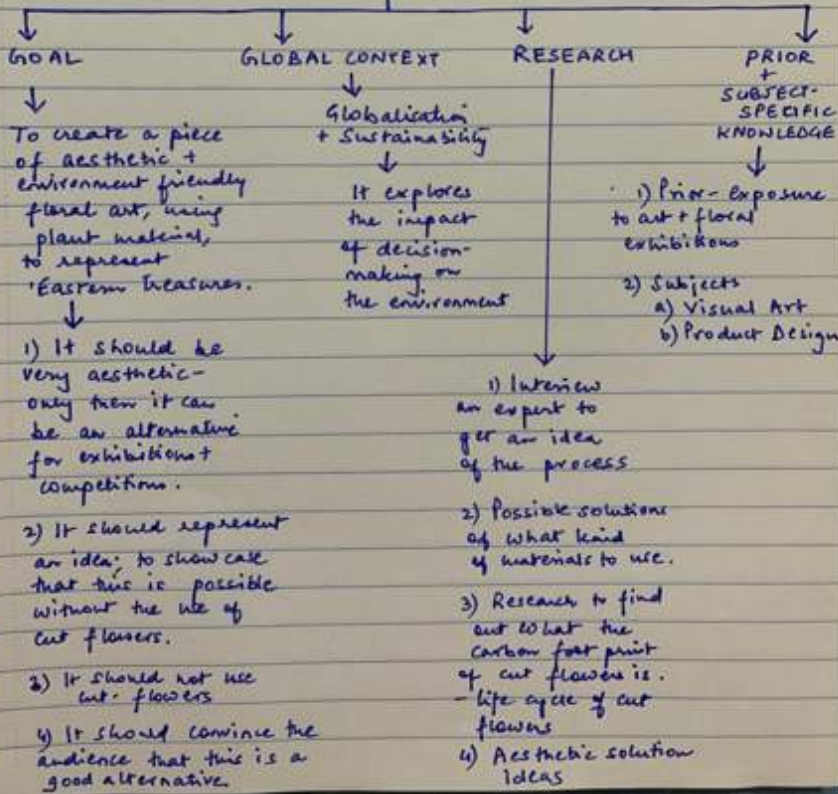 GOAL
To create a piece
of aesthetic +
environment friendly
floral art, using
plant material,
to represent
'Eastern treasures.
1) It should be
very aesthetic-
only then it can
be an alternative
for exhibitions +
competitions.
2) It should represent
an idea; to showcase
that this is possible
without the use of
cut flowers.
3) It should not use
cut-flowers
4) It should convince the
audience that this is a
good alternative
GLOBAL CONTEXT
Globalisation
+ Sustainability
It explores
the impact
of decision-
making on
the environment
RESEARCH
1) Interview
an expert to
get an idea
of the process
2) Possible solutions
of what kind
of materials to use.
3) Research to find
out what the
carbon foot print
of cut flowers is.
- life cycle of cut
flowers
4) Aesthetic solution
ideas
PRIOR
+
SUBJECT-
SPECIFIC
KNOWLEDGE
1) Prior- exposure
to art + floral
exhibitions
2) Subjects
a) Visual Art
b) Product Design